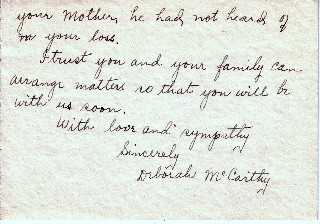 your Mother, he had not heard of
your loss.
I trust you and your family can
arrange matters so that you will be
with us soon.
With love and sympathy
Sincerely
Deborah McCarthy